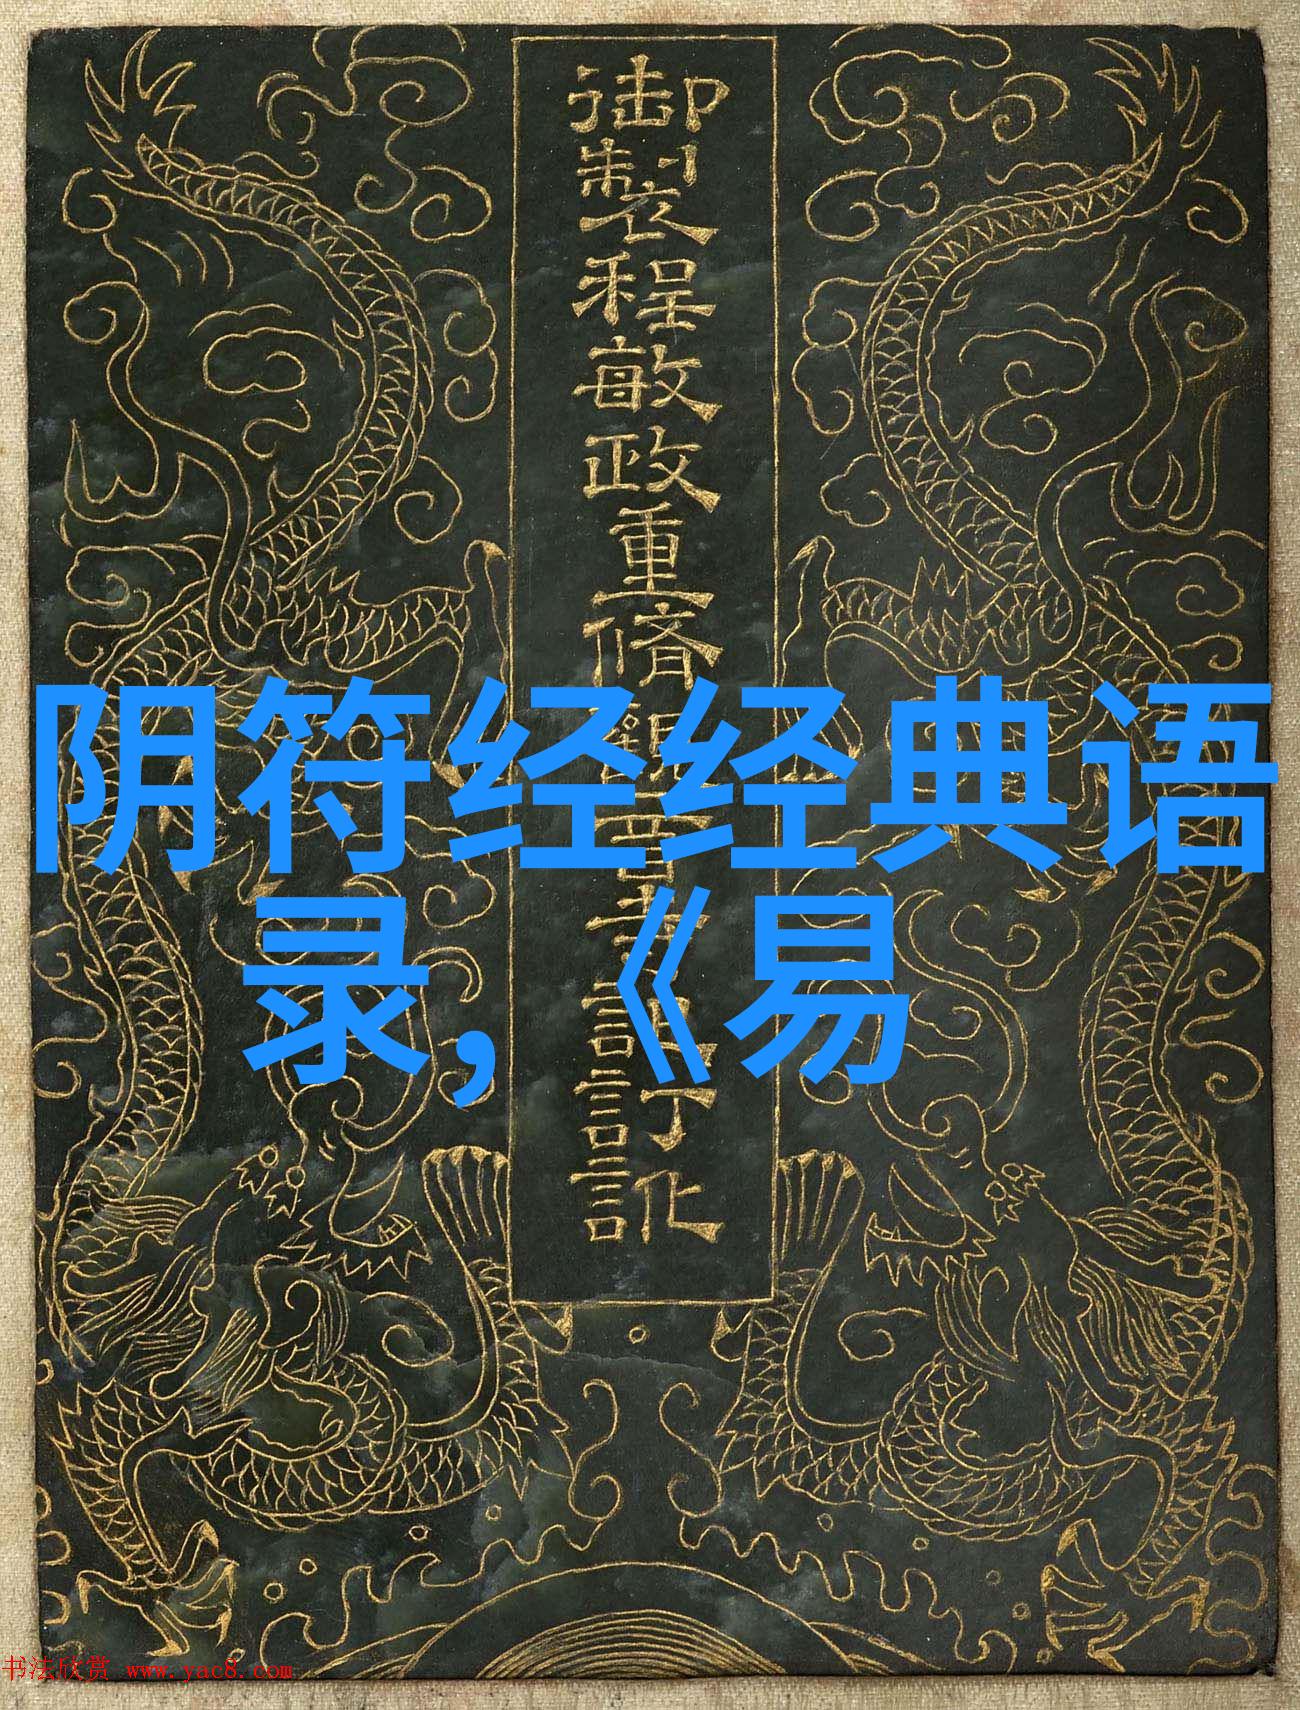 御製程敏政重脩觀音寺記訂訛
阴符经经典语
录,《易
书法欣赏 www.yac8.com